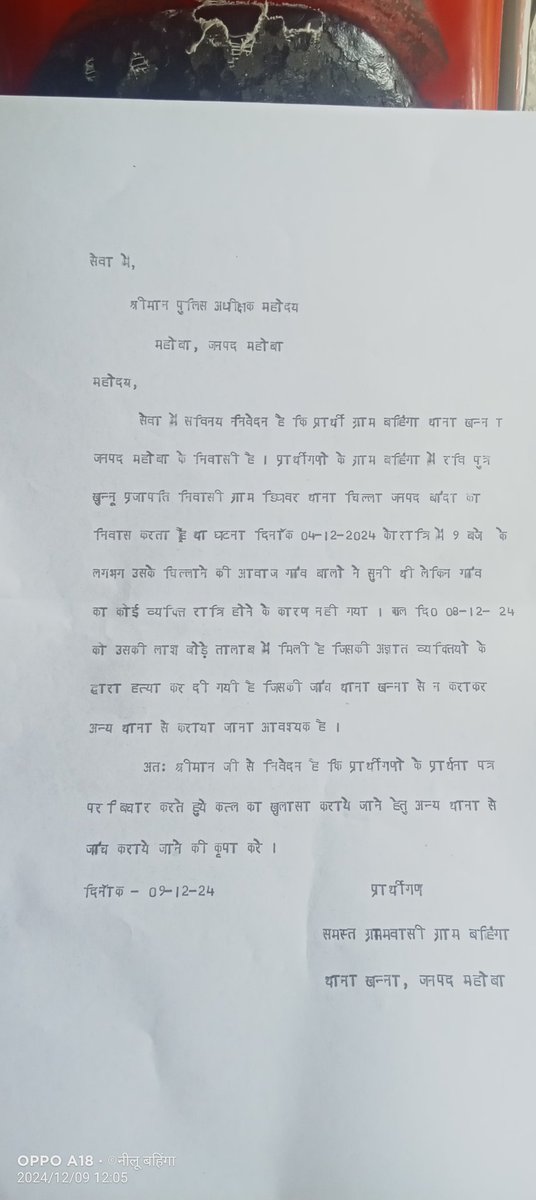 सेवा में,
श्रीमान पुलिस अधीक्षक महोदय
महोबा, जनपद महोबा
महोदय,
सेवा में सविनय निवेदन है कि प्रार्थी ग्राम बहिंगा थाना खन्ना
जनपद महोबा के निवासी है । प्रार्थीगणो के ग्राम बहिंगा में रवि पुत्र
खुन्नू प्रजापति निवासी ग्राम थाना चिल्ला जनपद बांदा का
निवास करता है था घटना दिनाँक 04-12-2024 के रात्रि में 9 बजे के
लगभग उसके चिल्लाने की आवाज गांव बालो ने सुनी थी लेकिन गांव
का कोई व्यक्ति रात्रि होने के कारण नही गया । दि0 08-12- 24
को उसकी लाश बोड़े तालाब में मिली है जिसकी अज्ञात व्यक्तियो के
द्वारा हत्या कर दी गयी है जिसकी जांच थाना खन्ना से न कराकर
अन्य थाना से कराया जाना आवश्यक है ।
अतः श्रीमान जी से निवेदन है कि प्रार्थीगणो के प्रार्थना पत्र
पर विचार करते हुये कत्ल का खुलासा कराये जाने हेतु अन्य थाना से
जांच कराये जाने की कृपा करे ।
दिनाँक - 09-12-24 प्रार्थीगण
समस्त ग्रामवासी ग्राम बहिंगा
थाना खन्ना, जनपद महोबा
OPPO A18 · ©नीलू बहिंगा
2024/12/09 12:05